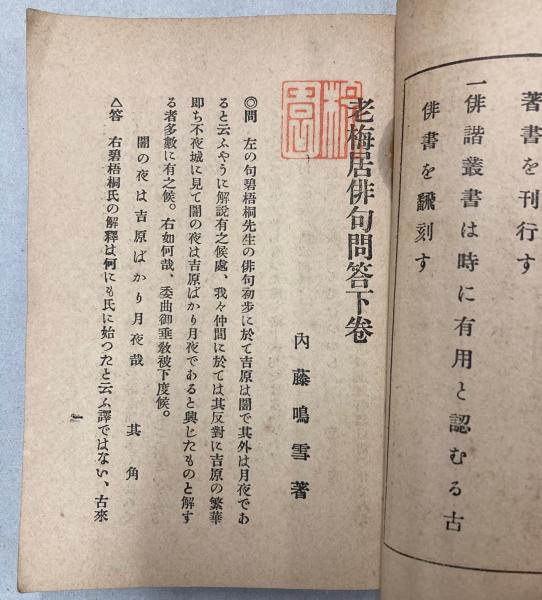 著書を刊行す
一俳諧叢書は時に有用と認むる古
俳書を飜刻す
老梅居俳句問答下卷
內藤鳴雪著
◎問 左の句碧梧桐先生の俳句初步に於て吉原は闇で其外は月夜であ
ると云ふやうに解說有之候處、我々仲間に於ては其反對に吉原の繁華
即ち不夜城に見て闇の夜は吉原ばかり月夜であると興じたものと解す
る者多數に有之候。右如何哉、委曲御垂敎被下度候。
闇の夜は吉原ばかり月夜哉 其角
△答 右碧梧桐氏の解釋は何にも氏に始つたと云ふ譯ではない、古來